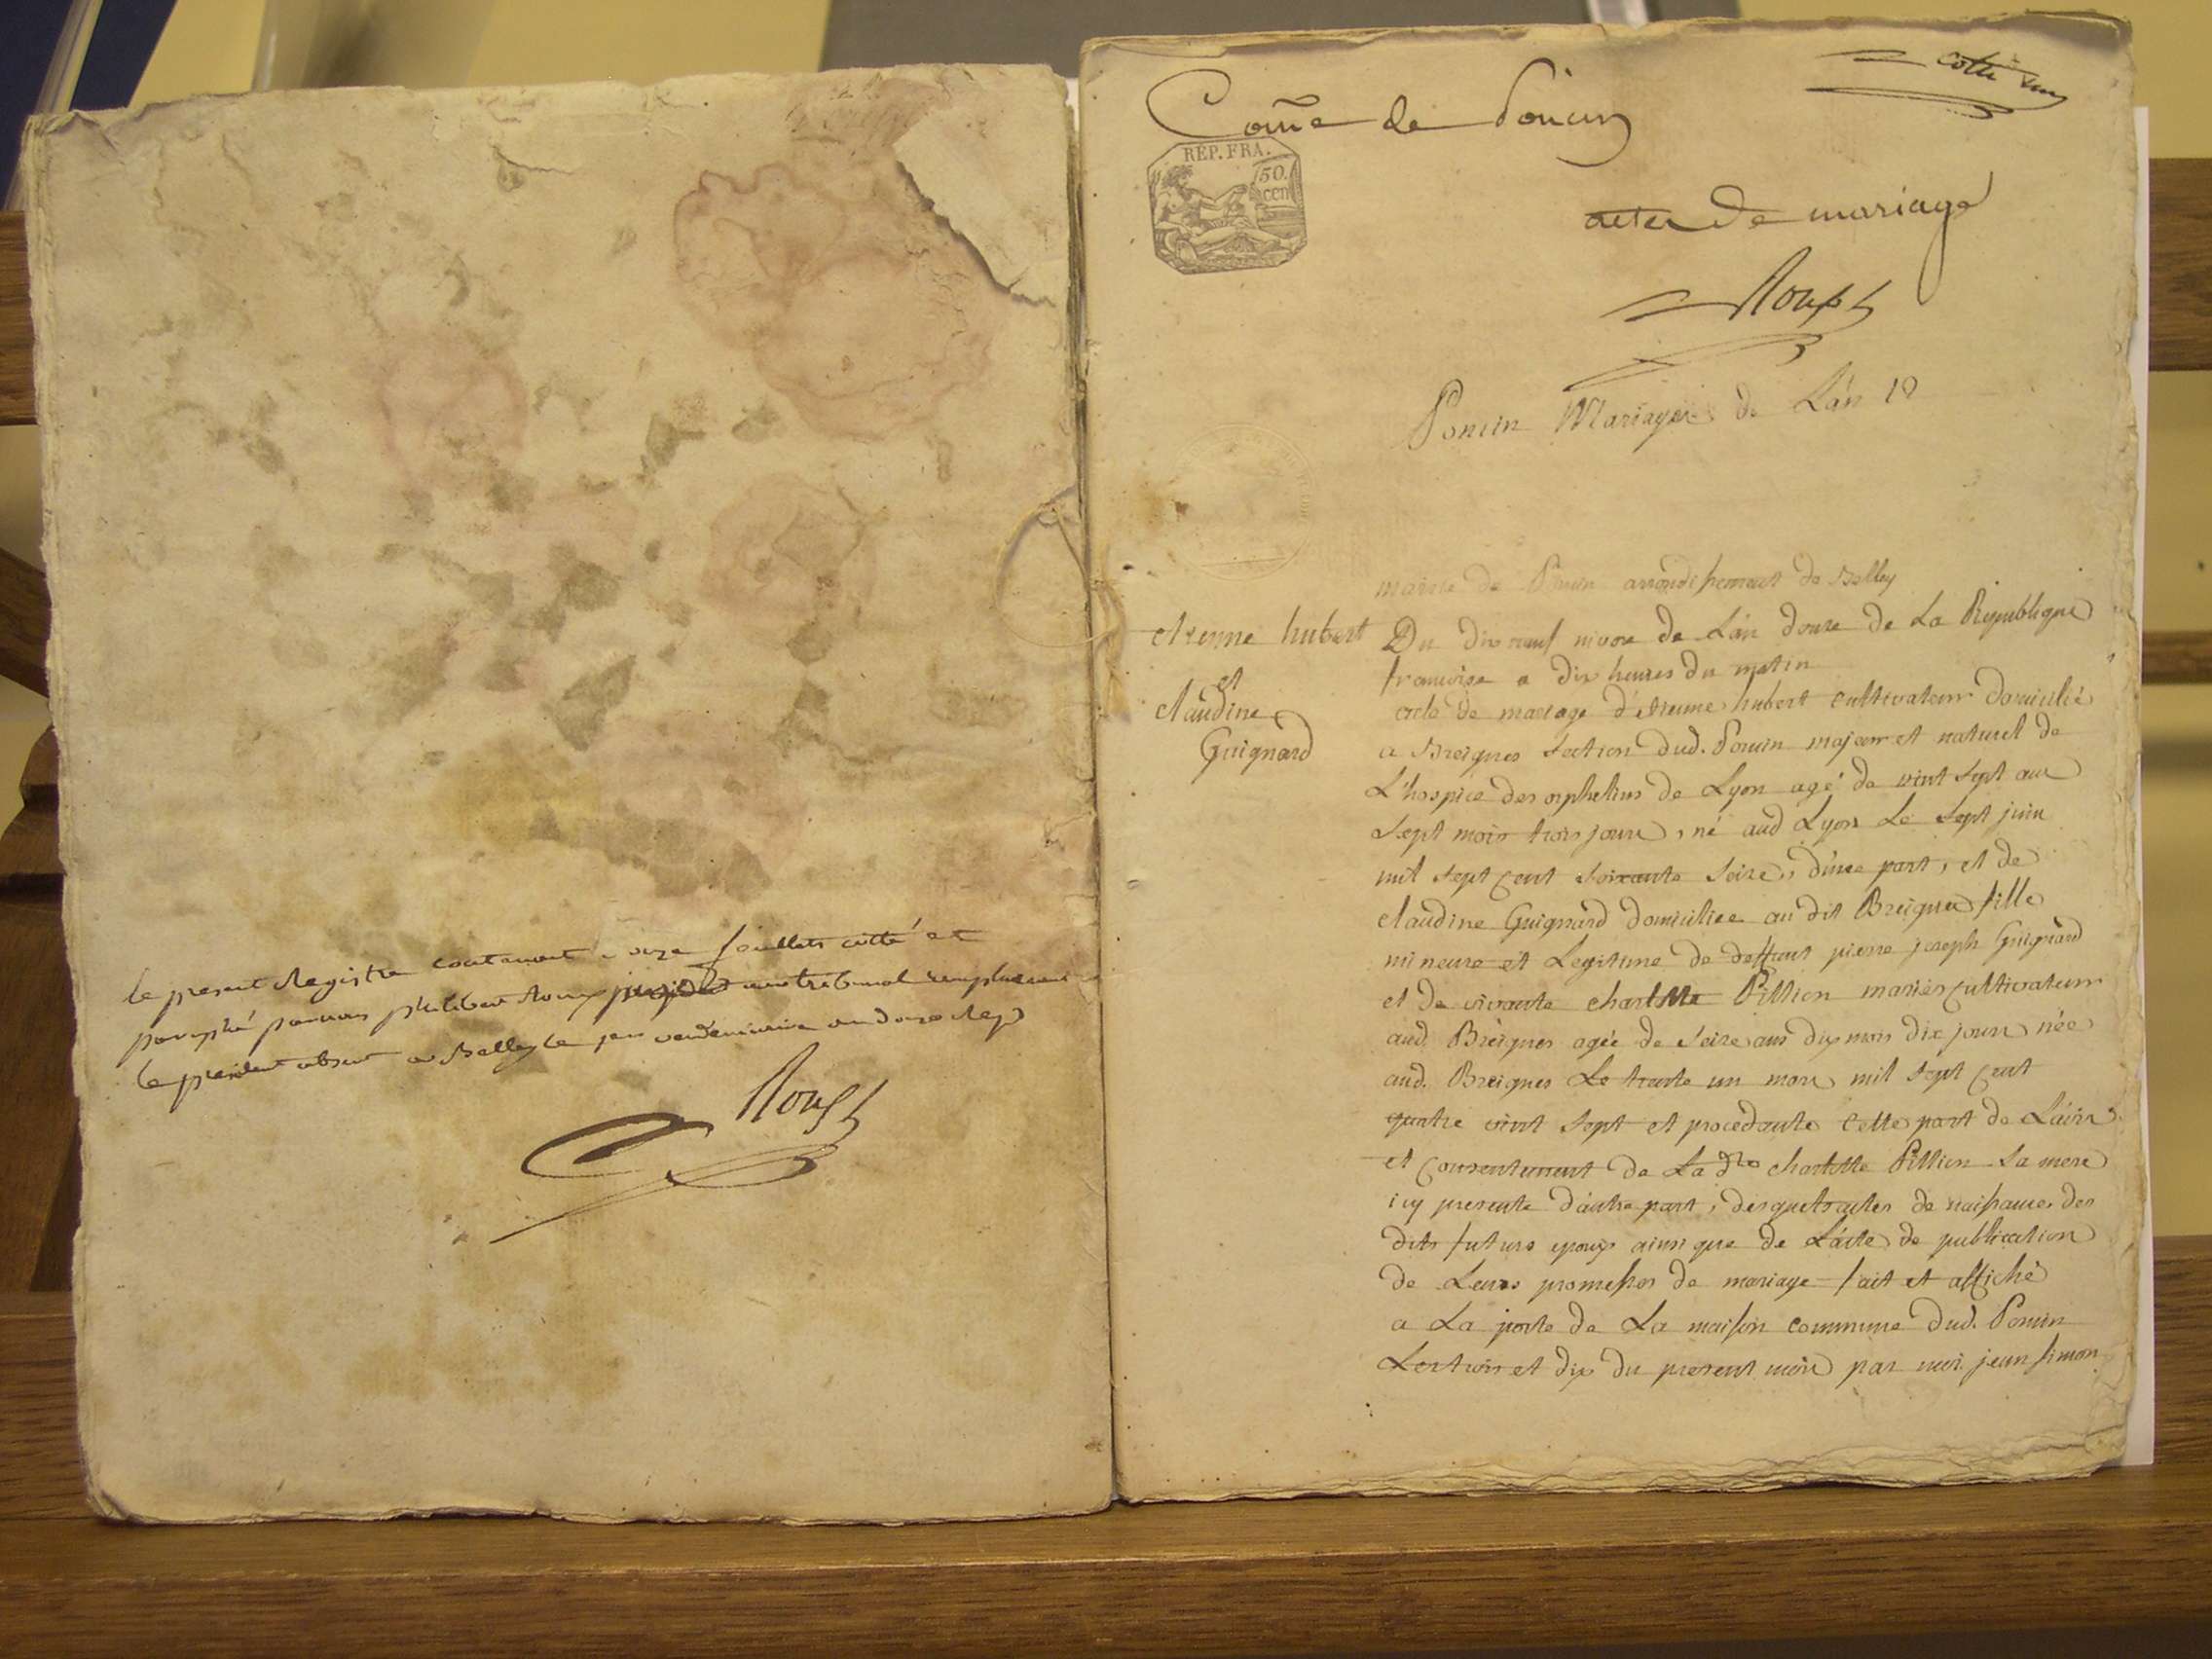 le present Registre contenant onze feuillets cotté et
paraphé par nous philibert Roux juge au tribunal remplacant
le president absent a Belley le per vendemiaire an douze Rep
Roux
cotté un
Comñe de Poncin
REP. FRA.
50.
cen
actes de mariage
Roux
Poncin Mariages de L'an 12
mairie de Poncin arrondissement de Belley
etienne hubert
et
claudine
Guignard
Du dix neuf nivose de L'an douze de La Republique
francoise a dix heures du matin
acte de mariage d'etienne hubert cultivateur domicilié
a Breignes section dud. Poncin majeur et naturel de
L'hospice des orphelins de Lyon agé de vint sept ans
sept mois trois jours, né aud Lyon Le sept juin
mil sept cent soixante seize, d'une part, et de
claudine Guignard domiciliee au dit Breignes fille
mineure et Legitime de deffunt pierre joseph Guignard
et de vivante charlotte Pittion mariés cultivateurs
aud. Breignes agée de seize ans dix mois dix jours née
aud. Breignes Le trente un mars mil sept cent
quatre vint sept et procedante cette part de L'avis
et consentement de La dte charlotte Pittion sa mere
icy presente d'autre part, des extraits de naissance des
dits futurs epoux ainsi que de L'acte de publication
de Leurs promesses de mariage fait et affiché
a La porte de La maison commune dud. Poncin
Les trois et dix du present mois par moi jean simon